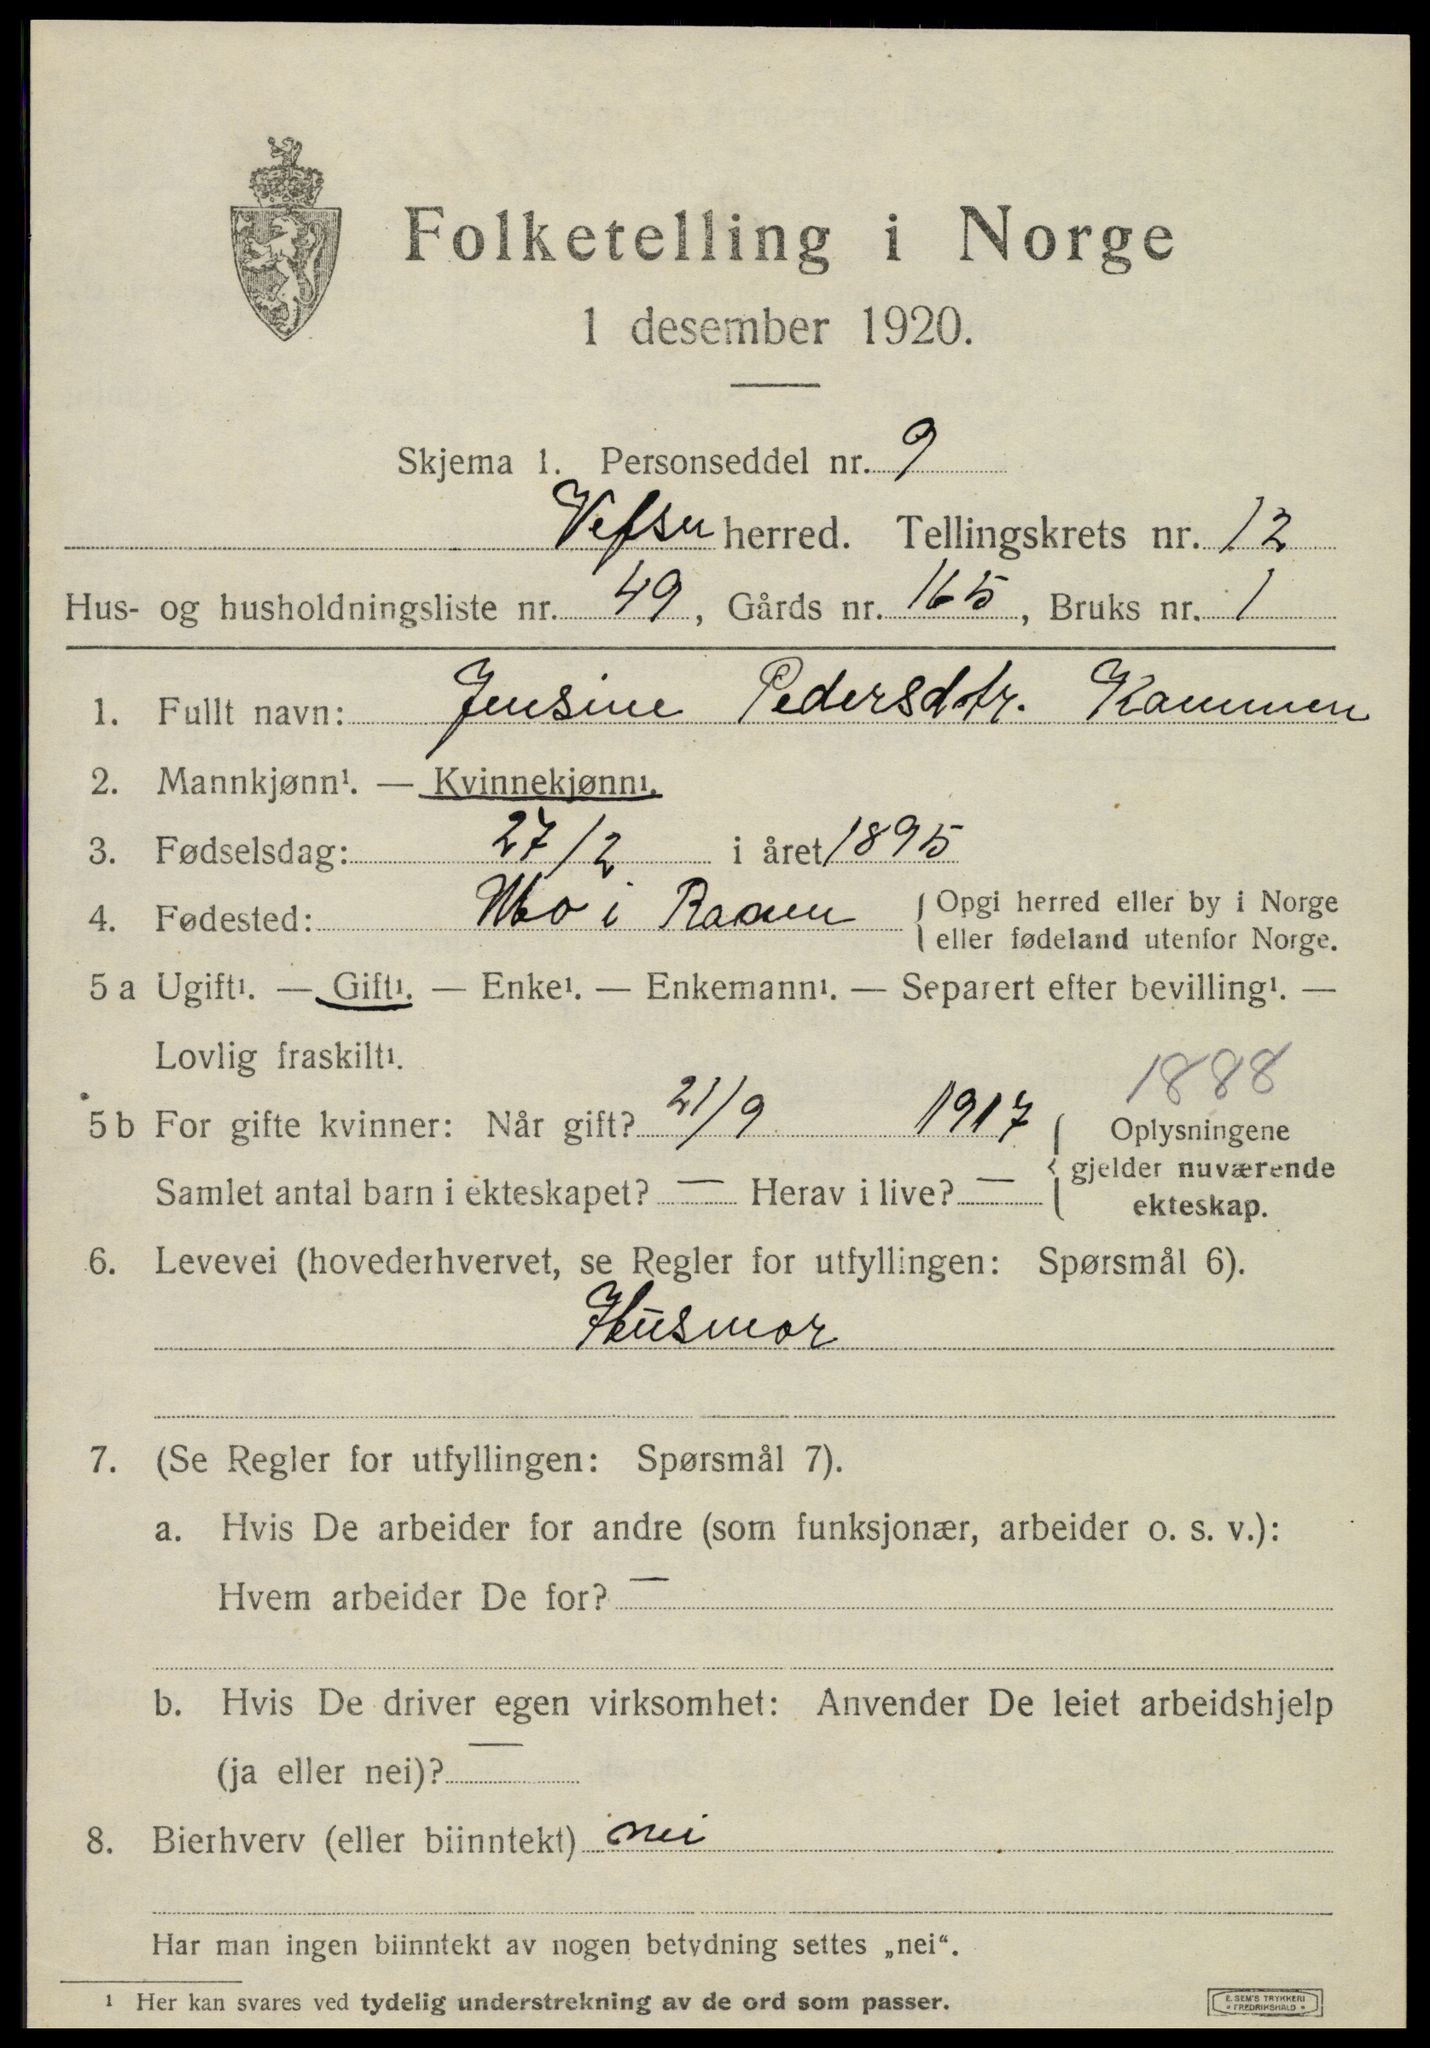 Folketelling i Norge
1 desember 1920.
Skjema 1. Personseddel nr. 9
Vefsn herred. Tellingskrets nr. 12
Hus- og husholdningsliste nr. 49, Gårds nr. 165, Bruks nr. 1
1. Fullt navn: Jensine Pedersdtr. Kammen
2. Mannkjønn¹. — Kvinnekjønn¹.
3. Fødselsdag: 27/2 i året 1895
4. Fødested: Mo i Ranen { Opgi herred eller by i Norge
eller fødeland utenfor Norge.
5 a Ugift¹. — Gift¹. — Enke¹. — Enkemann¹. — Separert efter bevilling¹. —
Lovlig fraskilt¹.
1888
5 b For gifte kvinner: Når gift? 21/9 1917 { Oplysningene
gjelder nuværende
Samlet antal barn i ekteskapet? — Herav i live? —
ekteskap.
6. Levevei (hovederhvervet, se Regler for utfyllingen: Spørsmål 6).
Husmor
7. (Se Regler for utfyllingen: Spørsmål 7).
a. Hvis De arbeider for andre (som funksjonær, arbeider o. s. v.):
Hvem arbeider De for? —
b. Hvis De driver egen virksomhet: Anvender De leiet arbeidshjelp
(ja eller nei)? —
8. Bierhverv (eller biinntekt) nei
Har man ingen biinntekt av nogen betydning settes „nei“.
¹ Her kan svares ved tydelig understrekning av de ord som passer.
E. SEM'S TRYKKERI
* FREDRIKSHALD *